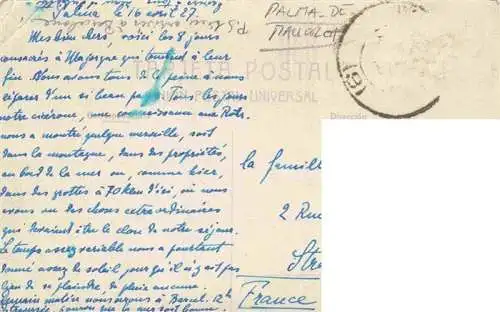 Palma, le 16 avril 27.
PALMA-DE
MALLORCA
Mes bien chers, voici les 8 jours
consacrés à Majorque qui touchent à leur
fin. Nous avons tous de la peine à nous
séparer d'un si beau pays. Tous les jours
notre cicérone, une connaissance aux Rotr.
nous a montré quelque merveille, soit
dans la montagne, dans des propriétés,
au bord de la mer ou, comme hier,
dans des grottes à 70 klm d'ici, où nous
avons vu des choses extraordinaires
qui devaient être le clou de notre séjour.
Le temps assez variable nous a pourtant
donné assez de soleil pour qu'il n'y ait pas
lieu de se plaindre de pluie aucune.
matin nous serons à Barcel. 12h
traversée, pourvu que la mer soit bonne.
TARJETA POSTAL
UNIÓN POSTAL UNIVERSAL
Dirección
(9)
La famille
2 Rue
Str
France